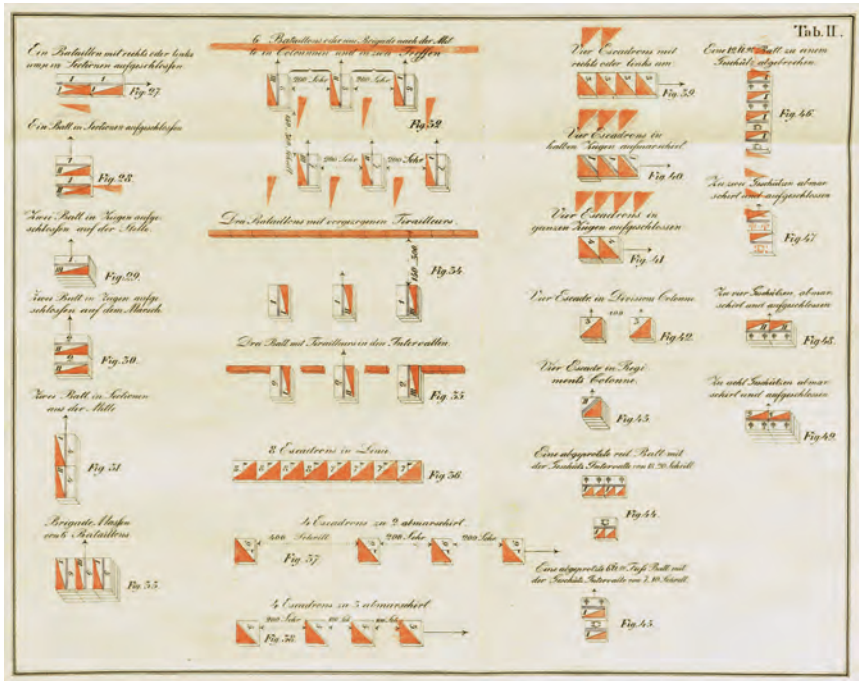 Tab. II.
Ein Bataillon mit rechts oder links
um in Sectionen aufgeschlossen
Fig. 27.
Ein Batl in Sectionen aufgeschlossen
Fig. 28.
Zwei Batl in Zügen aufge-
schlossen auf der Stelle.
Fig. 29.
Zwei Batl in Zügen aufge-
schlossen auf dem Marsch
Fig. 30.
Zwei Batl in Sectionen
aus der Mitte
Fig. 31.
Brigade Massen
von 6 Bataillons
Fig. 33.
6 Bataillons oder eine Brigade nach der Mit-
te in Colonnen und in zen Treffen
200 Schr
200 Schr
Fig. 32
200 Schr
200 Schr
Drei Bataillons mit vorgezogenen Tirailleurs.
150-300
Fig. 34
Drei Batl mit Tirailleurs in den Intervallen
Fig. 35
8 Escadrons in Linie
Fig. 36
4 Escadrons zu 2 abmarschirt
400 Schritt
200 Schr
200 Schr
Fig. 37
4 Escadrons zu 3 abmarschirt
200 Schr
Fig. 38.
Vier Escadrons mit
rechts oder links um
Fig. 39.
Vier Escadrons in
halben Zügen aufmarschirt
Fig. 40.
Vier Escadrons in
ganzen Zügen aufgeschlossen
Fig. 41
Vier Escadr. in Divisions Colonne
Fig. 42.
Vier Escadr in Regi-
ments Colonne.
Fig. 43.
Eine abgeprotzte reit Batl mit
der Geschütz Intervalle von 15. 20 Schritt
Fig. 44.
Eine abgeprotzte Fuß Batl mit
der Geschütz Intervalle von
Fig. 45.
Eine Batl zu einem
Geschütz abgebrochen
Fig. 46.
Zu zwei Geschützen abmar-
schirt und aufgeschlossen
Fig. 47
Zu vier Geschützen abmar-
schirt und aufgeschlossen
Fig. 48.
Zu acht Geschützen abmar-
schirt und aufgeschlossen
Fig. 49.